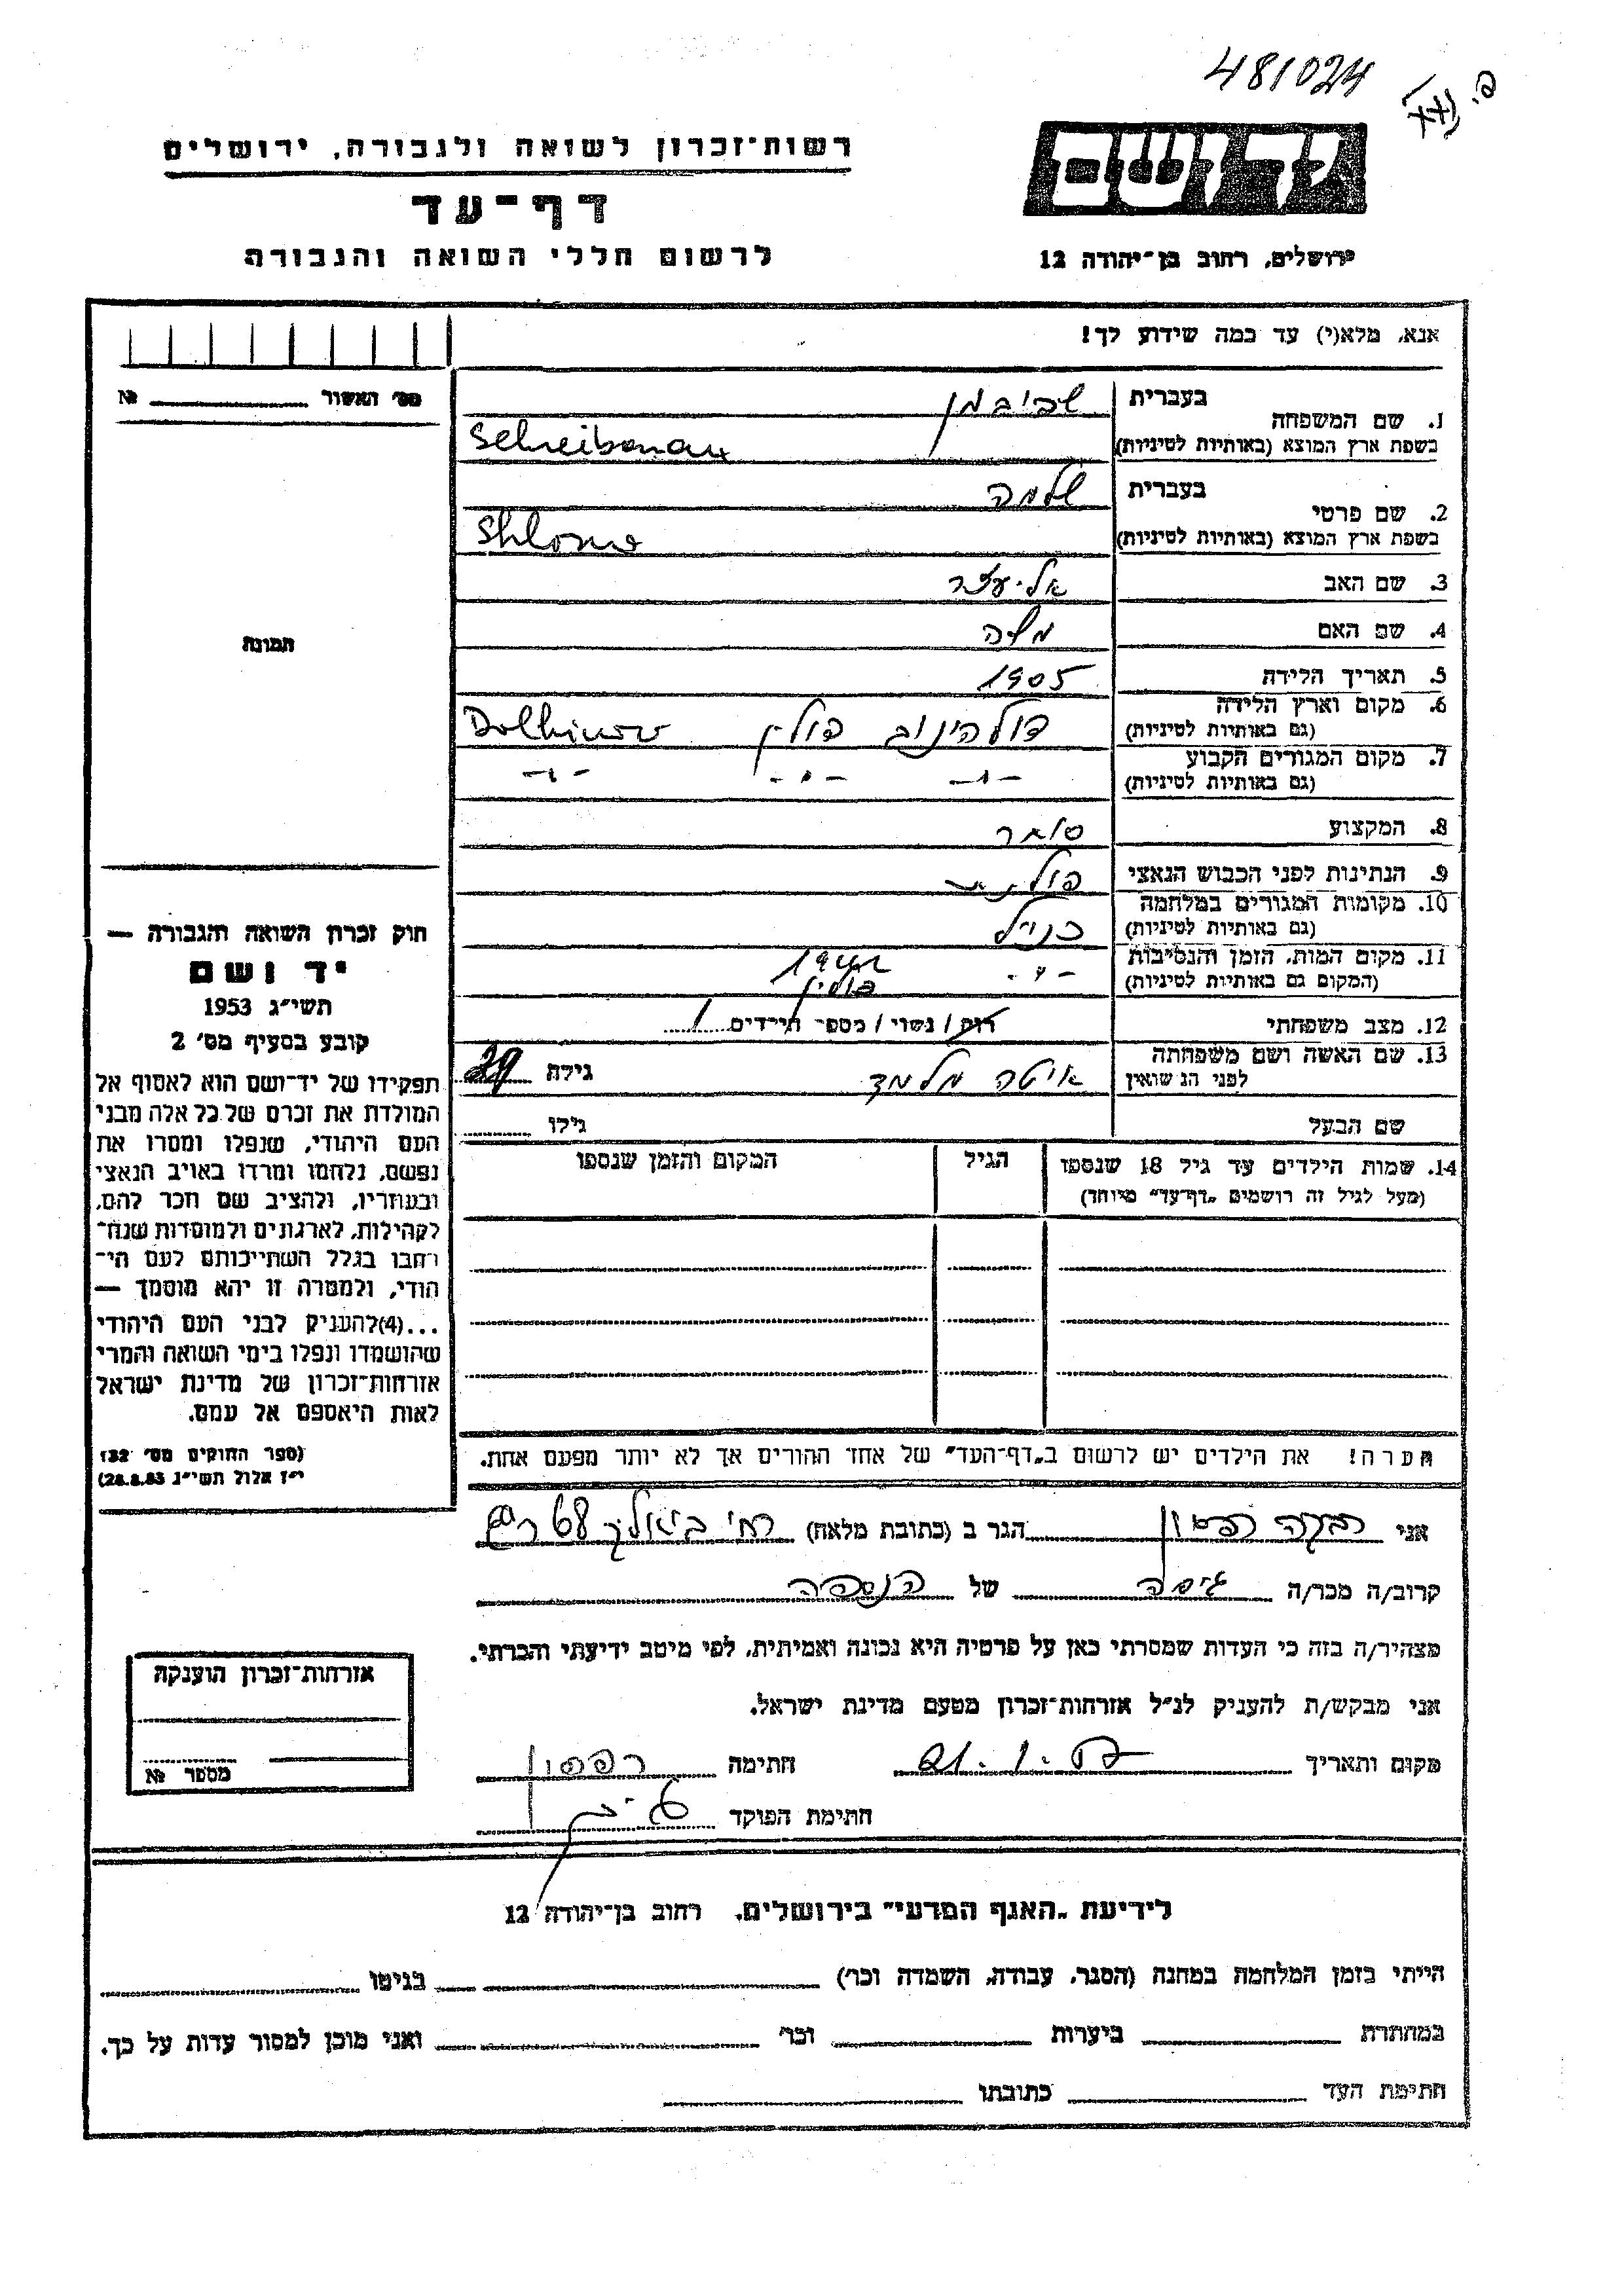 481024
רשות־זכרון לשואה ולגבורה, ירושלים
דף־עד
לרשום חללי השואה והגבורה
יד ושם
ירושלים, רחוב בן־יהודה 12
אנא, מלא(י) עד כמה שידוע לך!
מס׳ האשור № 
1. שם המשפחה
בעברית
שריבמן
בשפת ארץ המוצא (באותיות לטיניות)
2. שם פרטי
בעברית
שלמה
בשפת ארץ המוצא (באותיות לטיניות) Shlomo
3. שם האב אליעזר
4. שם האם
5. תאריך הלידה 1905
6. מקום וארץ הלידה
(גם באותיות לטיניות) דולהינוב פולין Dolhinov
7. מקום המגורים הקבוע
(גם באותיות לטיניות) -"- -"- -"-
8. המקצוע סוחר
9. הנתינות לפני הכבוש הנאצי פולנית
10. מקומות המגורים במלחמה
(גם באותיות לטיניות) כנ״ל
11. מקום המות, הזמן והנסיבות
(המקום גם באותיות לטיניות) -"- 1942
12. מצב משפחתי רווק / נשוי / מספר הילדים 1
13. שם האשה ושם משפחתה
לפני הנשואין איטה מלמד גילה 29
שם הבעל גילו
14. שמות הילדים עד גיל 18 שנספו
(מעל לגיל זה רושמים „דף־עד” מיוחד)
הגיל
המקום והזמן שנספו
הערה! את הילדים יש לרשום ב„דף־העד” של אחד ההורים אך לא יותר מפעם אחת.
תמונה
חוק זכרון השואה והגבורה —
יד ושם
תשי״ג 1953
קובע בסעיף מס׳ 2
תפקידו של יד־ושם הוא לאסוף אל
המולדת את זכרם של כל אלה מבני
העם היהודי, שנפלו ומסרו את
נפשם, נלחמו ומרדו באויב הנאצי
ובעוזריו, ולהציב שם וזכר להם,
לקהילות, לארגונים ולמוסדות שנח־
רבו בגלל השתייכותם לעם הי־
הודי, ולמטרה זו יהא מוסמך —
...(4)להעניק לבני העם היהודי
שהושמדו ונפלו בימי השואה והמרי
אזרחות־זכרון של מדינת ישראל
לאות היאספם אל עמם.
(ספר החוקים מס׳ 132
י״ז אלול תשי״ג 28.8.53)
אני רבקה הגר ב (כתובת מלאה)
קרוב/ה מכר/ה גיסה של הנספה
מצהיר/ה בזה כי העדות שמסרתי כאן על פרטיה היא נכונה ואמיתית, לפי מיטב ידיעתי והכרתי.
אני מבקש/ת להעניק לנ״ל אזרחות־זכרון מטעם מדינת ישראל.
מקום ותאריך חתימה
חתימת הפוקד
אזרחות־זכרון הוענקה
מספר №
לידיעת „האגף המדעי” בירושלים, רחוב בן־יהודה 12
הייתי בזמן המלחמה במחנה (הסגר, עבודה, השמדה וכו׳) בגיטו
במחתרת ביערות וכו׳ ואני מוכן למסור עדות על כך.
חתימת העד כתובתו